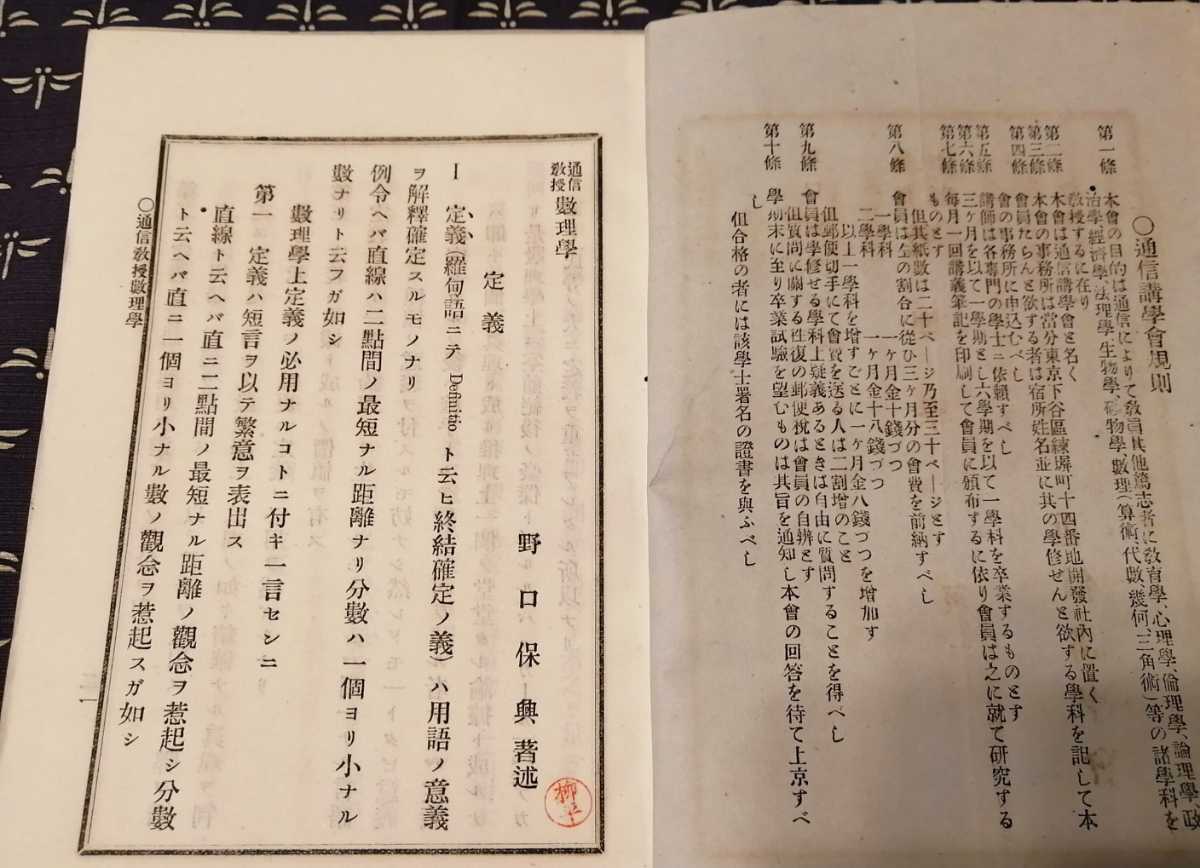 ○通信講學會規則
第一條　本會の目的は通信によりて敎員其他篤志者に敎育學、心理學、倫理學、論理學、政
治學、經濟學、法理學、生物學、礦物學、數理(算術、代數、幾何、三角術)等の諸學科を
敎授するに在り
第二條　本會は通信講學會と名く
第三條　本會の事務所は當分東京下谷區練塀町十四番地開發社內に置く
第四條　會員たらんと欲する者は宿所姓名並に其の學修せんと欲する學科を記して本
會の事務所に申込むべし
第五條　講師は各專門の學士ニ依賴すべし
第六條　三ケ月を以て一學期とし六學期を以て一學科を卒業するものとす
第七條　每月一回講義筆記を印刷して會員に頒布するに依り會員は之に就て硏究する
ものとす
但其紙數は二十ページ乃至三十ページとす
第八條　會員は左の割合に從ひ三ケ月分の會費を前納すべし
一學科　一ケ月金十錢づつ
二學科　一ケ月金十八錢づつ
以上一學科を增すごとに一ケ月金八錢づつを增加す
但郵便切手にて會費を送る人は二割增のこと
第九條　會員は學修せる學科上疑義あるときは自由に質問することを得べし
但質問に關する往復の郵便稅は會員の自辨とす
第十條　學期末に至り卒業試驗を望むものは其旨を通知し本會の回答を待て上京すべ
し
但合格の者には該學士署名の證書を與ふべし
通信敎授 數理學
野口保興著述
定義
I　定義(羅甸語ニテ Definitio ト云ヒ終結確定ノ義)ハ用語ノ意義
ヲ解釋確定スルモノナリ
例令ヘバ直線ハ二點間ノ最短ナル距離ナリ分數ハ一個ヨリ小ナル
數ナリト云フガ如シ
數理學上定義ノ必用ナルコトニ付キ一言センニ
第一　定義ハ短言ヲ以テ繁意ヲ表出ス
直線ト云ヘバ直ニ二點間ノ最短ナル距離ノ觀念ヲ惹起シ分數
ト云ヘバ直ニ一個ヨリ小ナル數ノ觀念ヲ惹起スガ如シ
○通信敎授數理學